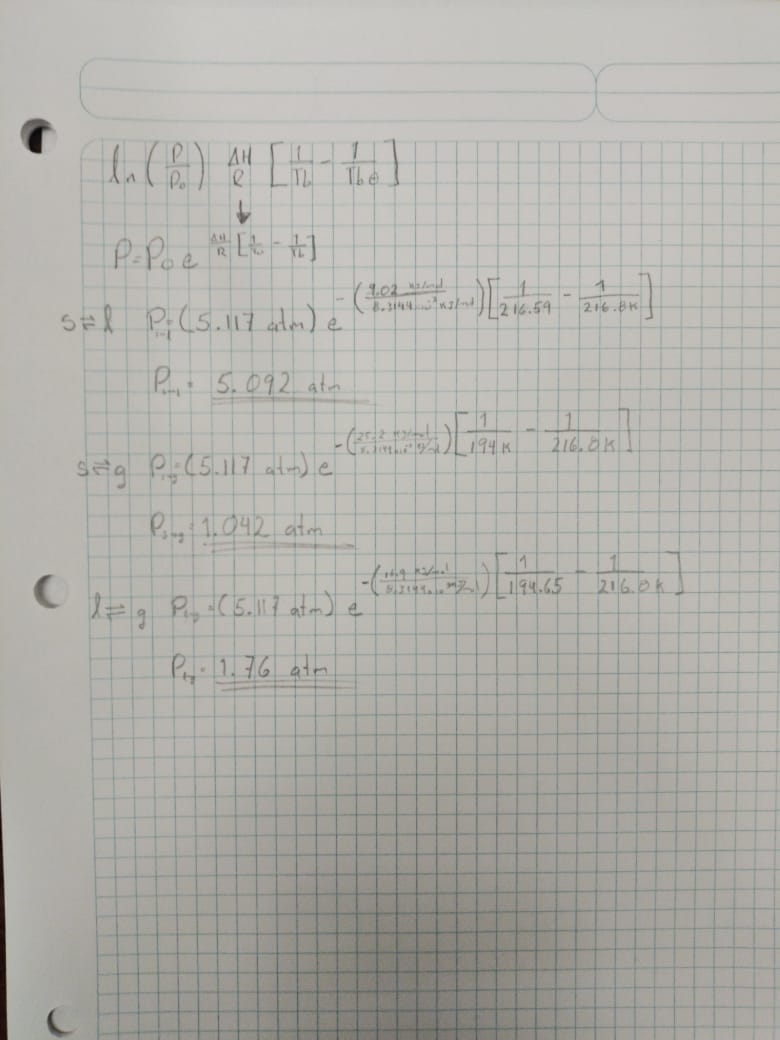 ln (P/P₀) ΔH/R [1/Tb - 1/Tbθ]
↓
P=P₀ e^ ΔH/R [1/T₀ - 1/Tb]
s⇌l P=(5.117 atm) e^ -(9.02 kJ/mol / 8.3144...)[1/216.59 - 1/216.8K]
P = 5.092 atm
s⇌g P=(5.117 atm) e^ -(25.2 kJ/mol / 8.3144...)[1/194K - 1/216.8K]
P = 1.042 atm
l⇌g P =(5.117 atm) e^ -(16.9 kJ/mol / 8.3144...)[1/194.65 - 1/216.8K]
P = 1.76 atm